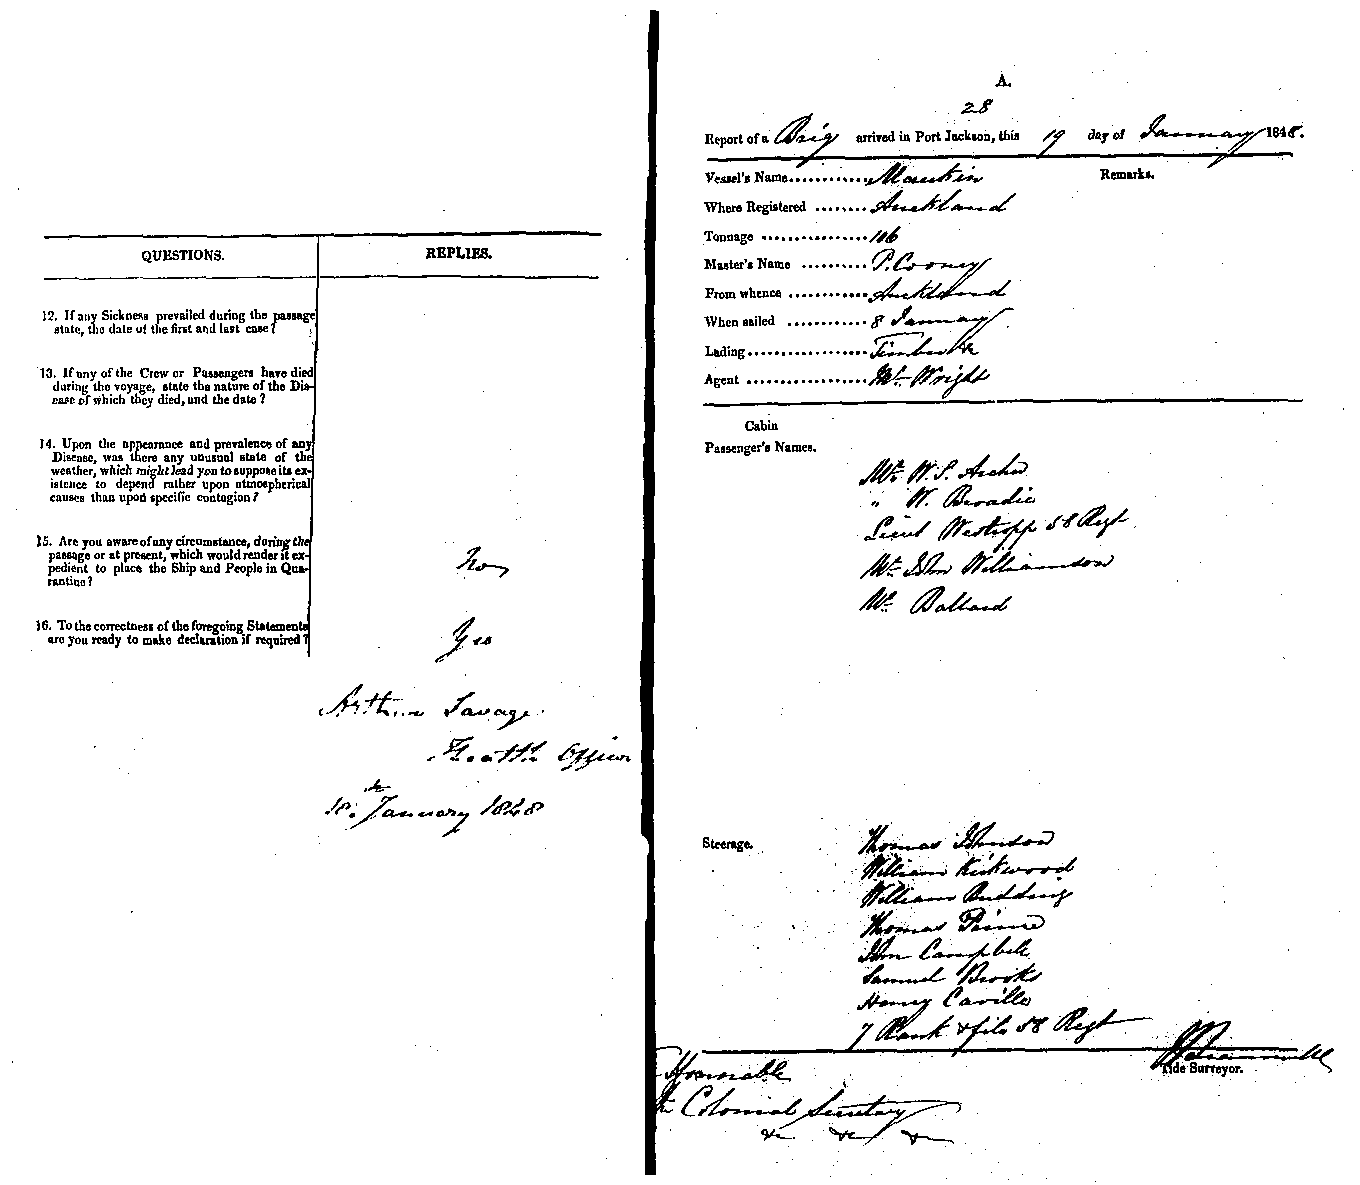 QUESTIONS.
REPLIES.
12. If any Sickness prevailed during the passage
state, the date of the first and last case?
13. If any of the Crew or Passengers have died
during the voyage, state the nature of the Dis-
ease of which they died, and the date?
14. Upon the appearance and prevalence of any
Disease, was there any unusual state of the
weather, which might lead you to suppose its ex-
istence to depend rather upon atmospherical
causes than upon specific contagion?
15. Are you aware of any circumstance, during the
passage or at present, which would render it ex-
pedient to place the Ship and People in Qua-
rantine?
No
16. To the correctness of the foregoing Statements
are you ready to make declaration if required?
Yes
Arthur Savage
Health Officer
18th January 1848
A.
28
Report of a Brig arrived in Port Jackson, this 19 day of January 1848.
Vessel's Name............ Maukin
Remarks.
Where Registered ........ Auckland
Tonnage ................ 106
Master's Name .......... P. Cooney
From whence ............ Auckland
When sailed ............ 8 January
Lading.................. Timber &c
Agent .................. Mr. Wright
Cabin
Passenger's Names.
Mr. W. S. Archer
" W. Broadie
Lieut Westropp 58 Regt
Mr. John Williamson
Mr. Ballard
Steerage.
Thomas Johnson
William Kirkwood
William Budding
Thomas Paine
John Campbell
Samuel Brooks
Henry Caville
7 Rank & file 58 Regt
Tide Surveyor.
Honorable
The Colonial Secretary
&c &c &c